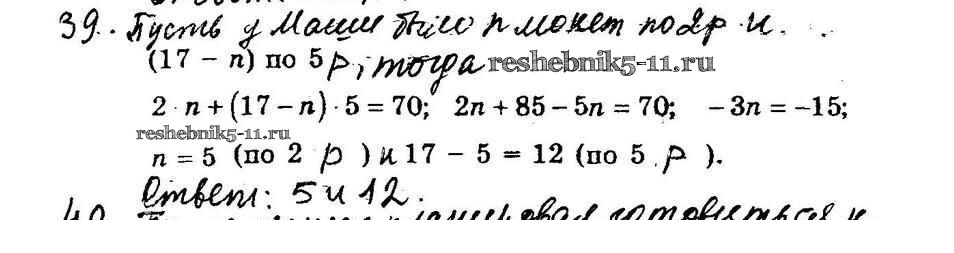 39. Пусть у Маши было n монет по 2р и
(17 – n) по 5р, тогда reshebnik5-11.ru
2 · n + (17 – n) · 5 = 70; 2n + 85 – 5n = 70; –3n = –15;
reshebnik5-11.ru
n = 5 (по 2 р ) и 17 – 5 = 12 (по 5 р ).
Ответ: 5 и 12.
40.